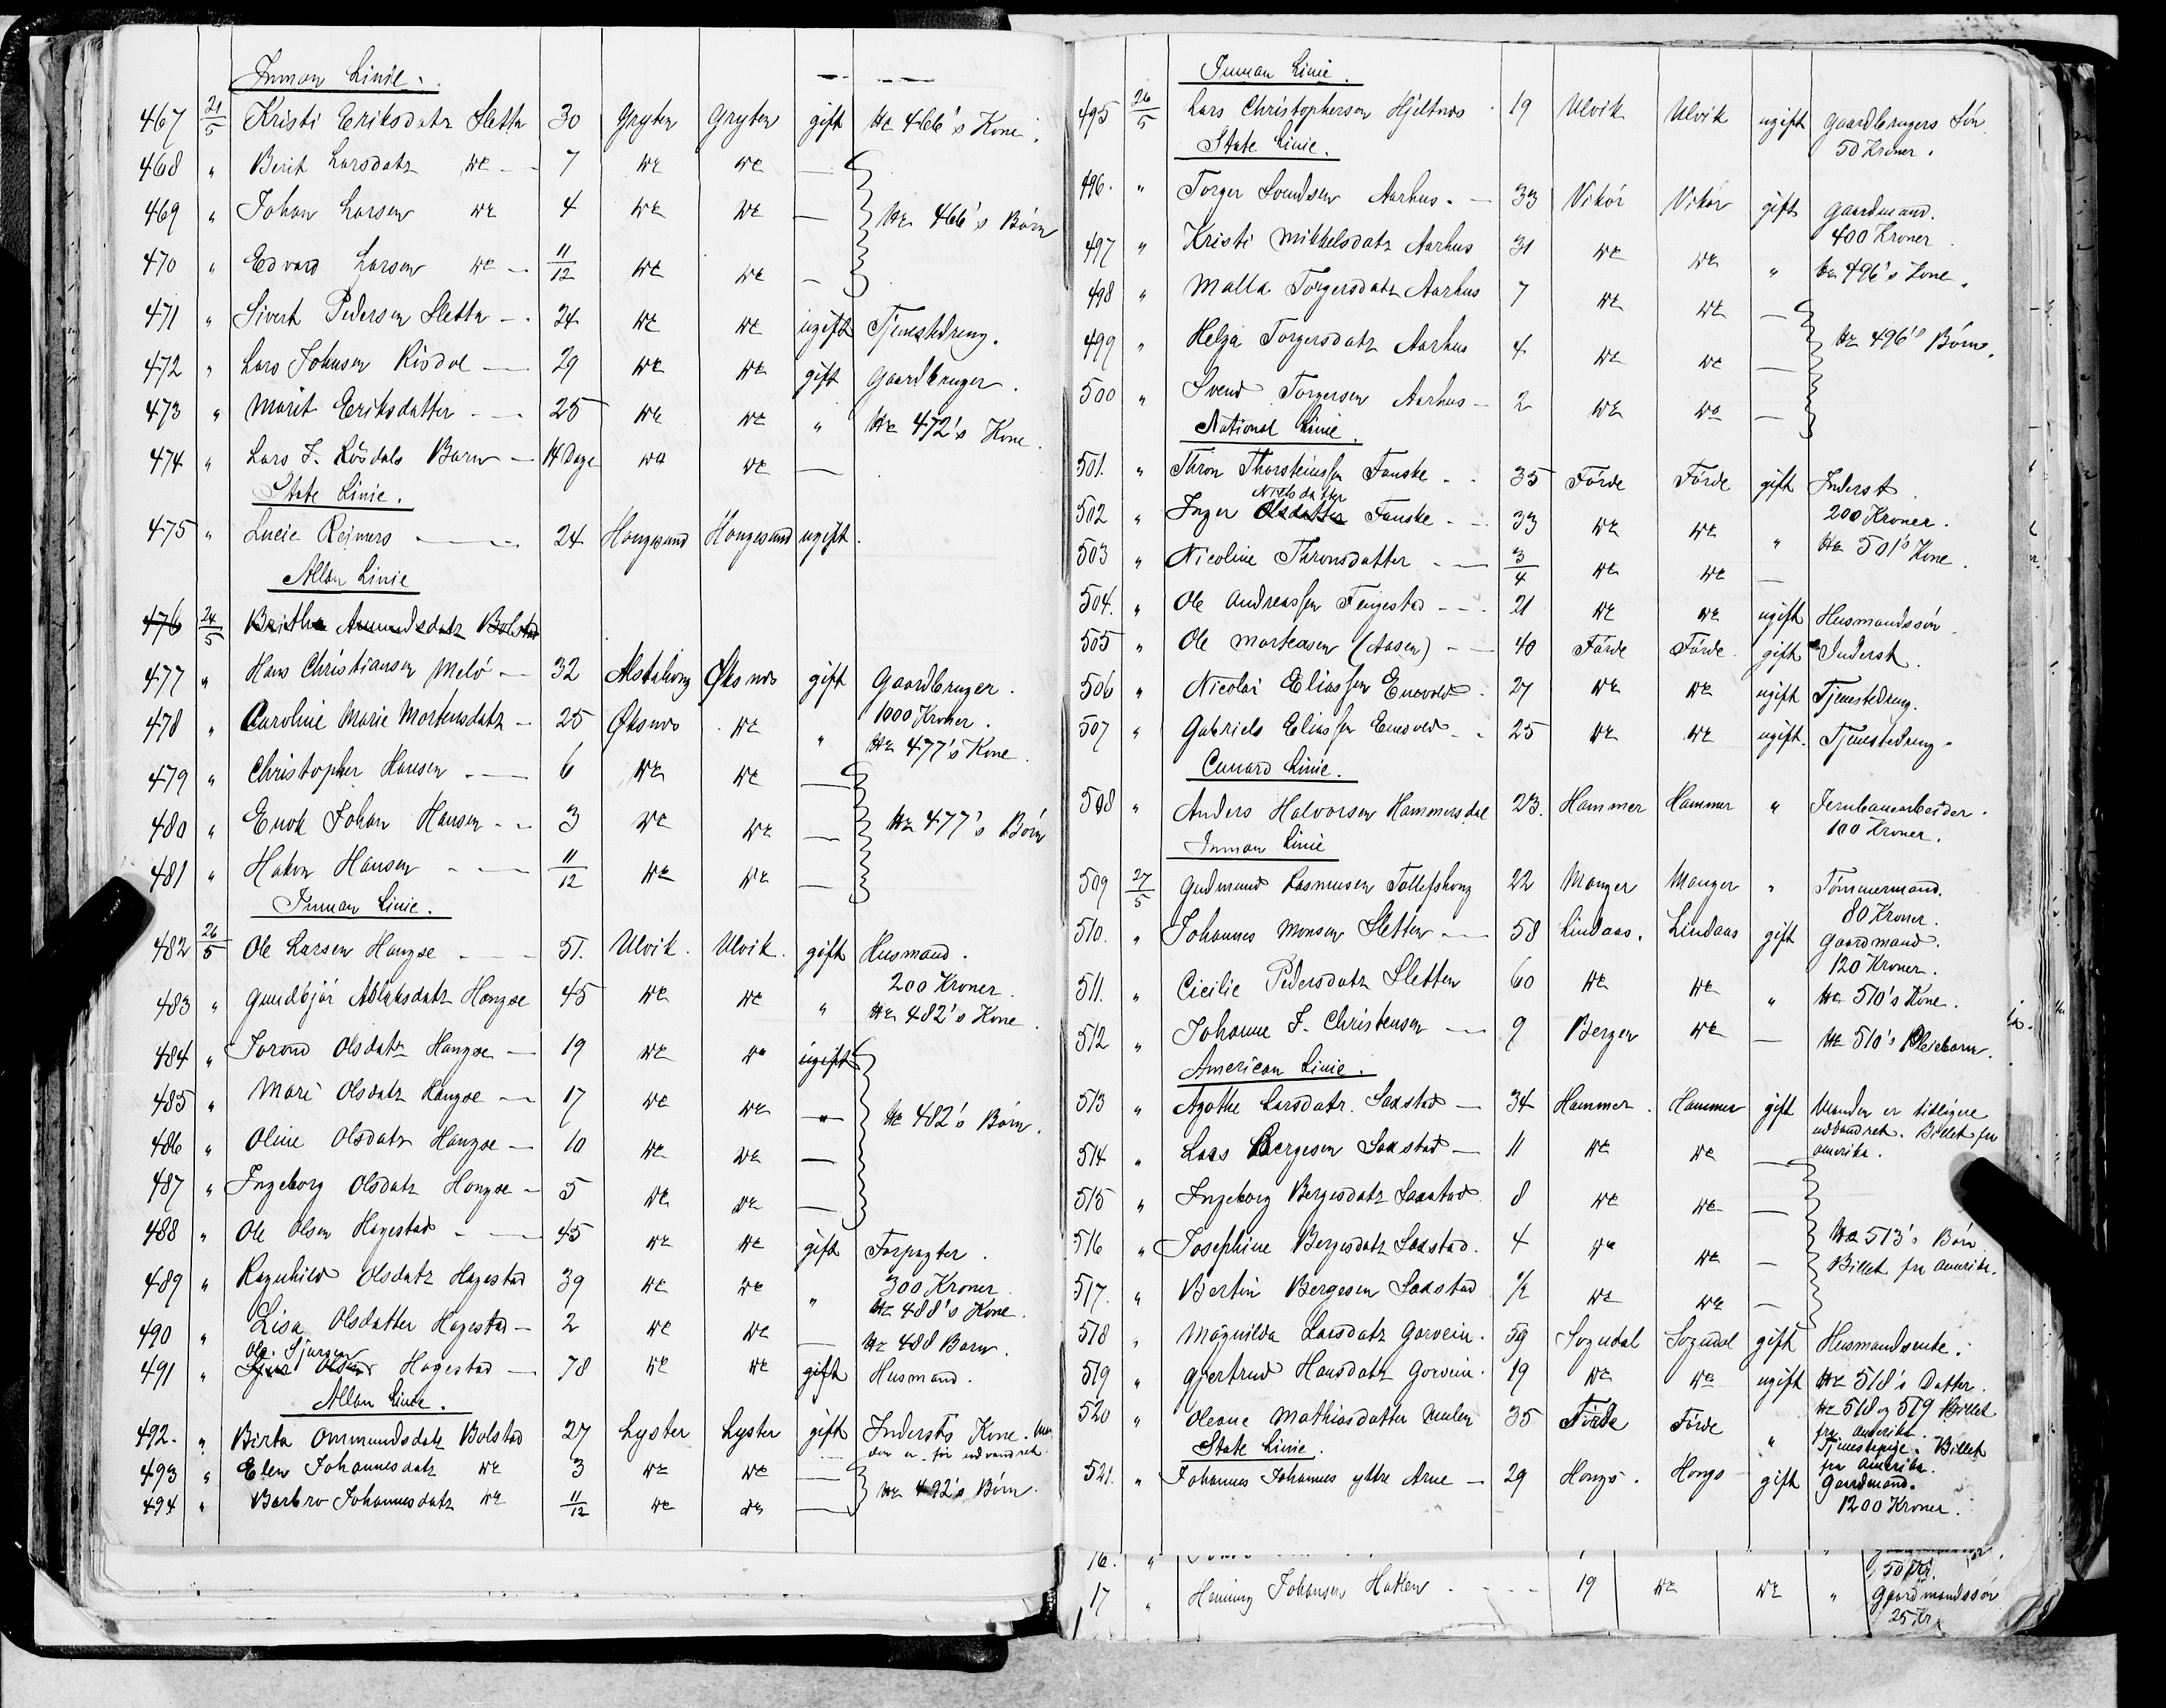 Inman Linie.
467 21/5 Kristi Eriksdatr Sletta 30 Gryten Gryten gift No 466's Kone.
468 " Berit Larsdatr do — 7 do do —
469 " Johan Larsen do 4 do do — No 466's Børn
470 " Edvard Larsen do — 11/12 do do —
471 " Sivert Pedersen Sletta — 24 do do ugift Tjenestedreng.
472 " Lars Johnsen — 29 do do gift Gaardbruger.
473 " Marit Eriksdatter — 25 do do " No 472's Kone.
474 " Lars J. Barn — 14 Dage do do —
State Linie.
475 " Lucie Reimers — 24 Haugesund Haugesund ugift.
Allan Linie
476 24/5 Britha Amundsdatr Bolstad
477 " Hans Christiansen Melö — 32 Alstahoug Øksnes gift Gaardbruger.
1000 Kroner.
478 " Caroline Marie Mortensdatr — 25 Øksnes do " No 477's Kone.
479 " Christopher Hansen — 6 do do —
480 " Enok Johan Hansen — 3 do do — No 477's Børn
481 " Hakon Hansen — 11/12 do do —
Inman Linie.
482 26/5 Ole Larsen Haugse — 51. Ulvik. Ulvik. gift Husmand.
200 Kroner.
483 " Aslaksdatr Haugse 45 do do " No 482's Kone.
484 " Olsdatr Haugse — 19 do do ugift
485 " Mari Olsdatr Haugse — 17 do do — No 482's Børn.
486 " Oline Olsdatr Haugse — 10 do do —
487 " Ingeborg Olsdatr Haugse — 5 do do —
488 " Ole Olsen Hagestad — 45 do do gift Forpagter.
300 Kroner.
489 " Ragnhild Olsdatr Hagestad 39 do do " No 488's Kone.
490 " Lisa Olsdatter Hagestad — 2 do do — No 488 Barn.
Ole Sjursen
491 " Sjur Olsen Hagestad — 78 do do gift Husmand.
Allan Linie.
492. " Birta Ommundsdatr Bolstad 27 Lyster Lyster gift Indersts Kone. Man
den er før udvandret.
493 " Elen Johannesdatr do 3 do do —
494 " Barbro Johannesdatr do 11/12 do do — No 492's Børn.
Inman Linie.
495 26/5 Lars Christophersen Hjeltnæs 19 Ulvik Ulvik ugift Gaardbrugers Søn.
50 Kroner.
State Linie.
496. " Torger Svendsen Aarhus. — 33 Vikör Vikör gift Gaardmand.
400 Kroner.
497 " Kristi Mikkelsdatr Aarhus 31 do do " No 496's Kone.
498 " Malla Torgersdatr Aarhus 7 do do —
499 " Helga Torgersdatr Aarhus 4 do do — No 496's Børn.
500 " Svend Torgersen Aarhus — 2 do do —
National Linie.
501. " Thron Thorsteinssen Fauske — 35 Förde Förde gift Inderst.
200 Kroner.
Nielsdatter
502 " Inger Olsdatter Fauske — 33 do do " No 501's Kone.
503 " Nicoline Thronsdatter — 3/4 do do —
504. " Ole Andreassen Fengestad — 21 do do ugift Husmandssøn.
505 " Ole Mortensen (Aasen) — 40 Förde Förde gift Inderst.
506 " Nicolai Eliassen — 27 do do ugift Tjenestedreng.
507 " Gabriels Eliassen — 25 do do ugift. Tjenestedreng.
Cunard Linie.
508 " Anders Halvorsen Hammersdal 23. Hammer Hammer " Jernbanearbeider.
100 Kroner.
Inman Linie
509 27/5 Gudmund Rasmusen Tollefshoug 22 Manger Manger " Tömmermand.
80 Kroner.
510. " Johannes Monsen Sletten — 58 Lindaas. Lindaas gift Gaardmand.
120 Kroner.
511. " Cicilie Pedersdatr Sletten 60 do do " No 510's Kone.
512 " Johanne F. Christensen — 9 Bergen do — No 510's Pleiebarn.
American Linie.
513 " Agathe Larsdatr. Saxstad — 34 Hammer. Hammer gift Manden er tidligere
udvandret. Billet fra
Amerika.
514 " Lars Bergesen Saxstad — 11 do do —
515 " Ingeborg Bergesdatr Saxstad 8 do do —
516 " Josephine Bergesdatr Saxstad. 4 do do — No 513's Børn
Billet fra Amerika.
517. " Bertin Bergesen Saxstad 1/2 do do —
518 " Magnilda Larsdatr Gorvein. 59 Sogndal Sogndal gift Husmandsenke.
519 " Gjertrud Hansdatr Gorvein. 19 do do ugift No 518's Datter.
No 518 og 519 Billet
fra Amerika.
520 " Oleane Mathiasdatter Mulen 35 Förde Förde " Tjenestepige. Billet
fra Amerika.
State Linie.
521. " Johannes Johannes yttre Arne — 29 Hougs. Hougs gift Gaardmand.
1200 Kroner.
16. "
50 Kr.
17 " Henning Johansen Hatlen — 19 do do " Gaardmandssøn
25 Kr.